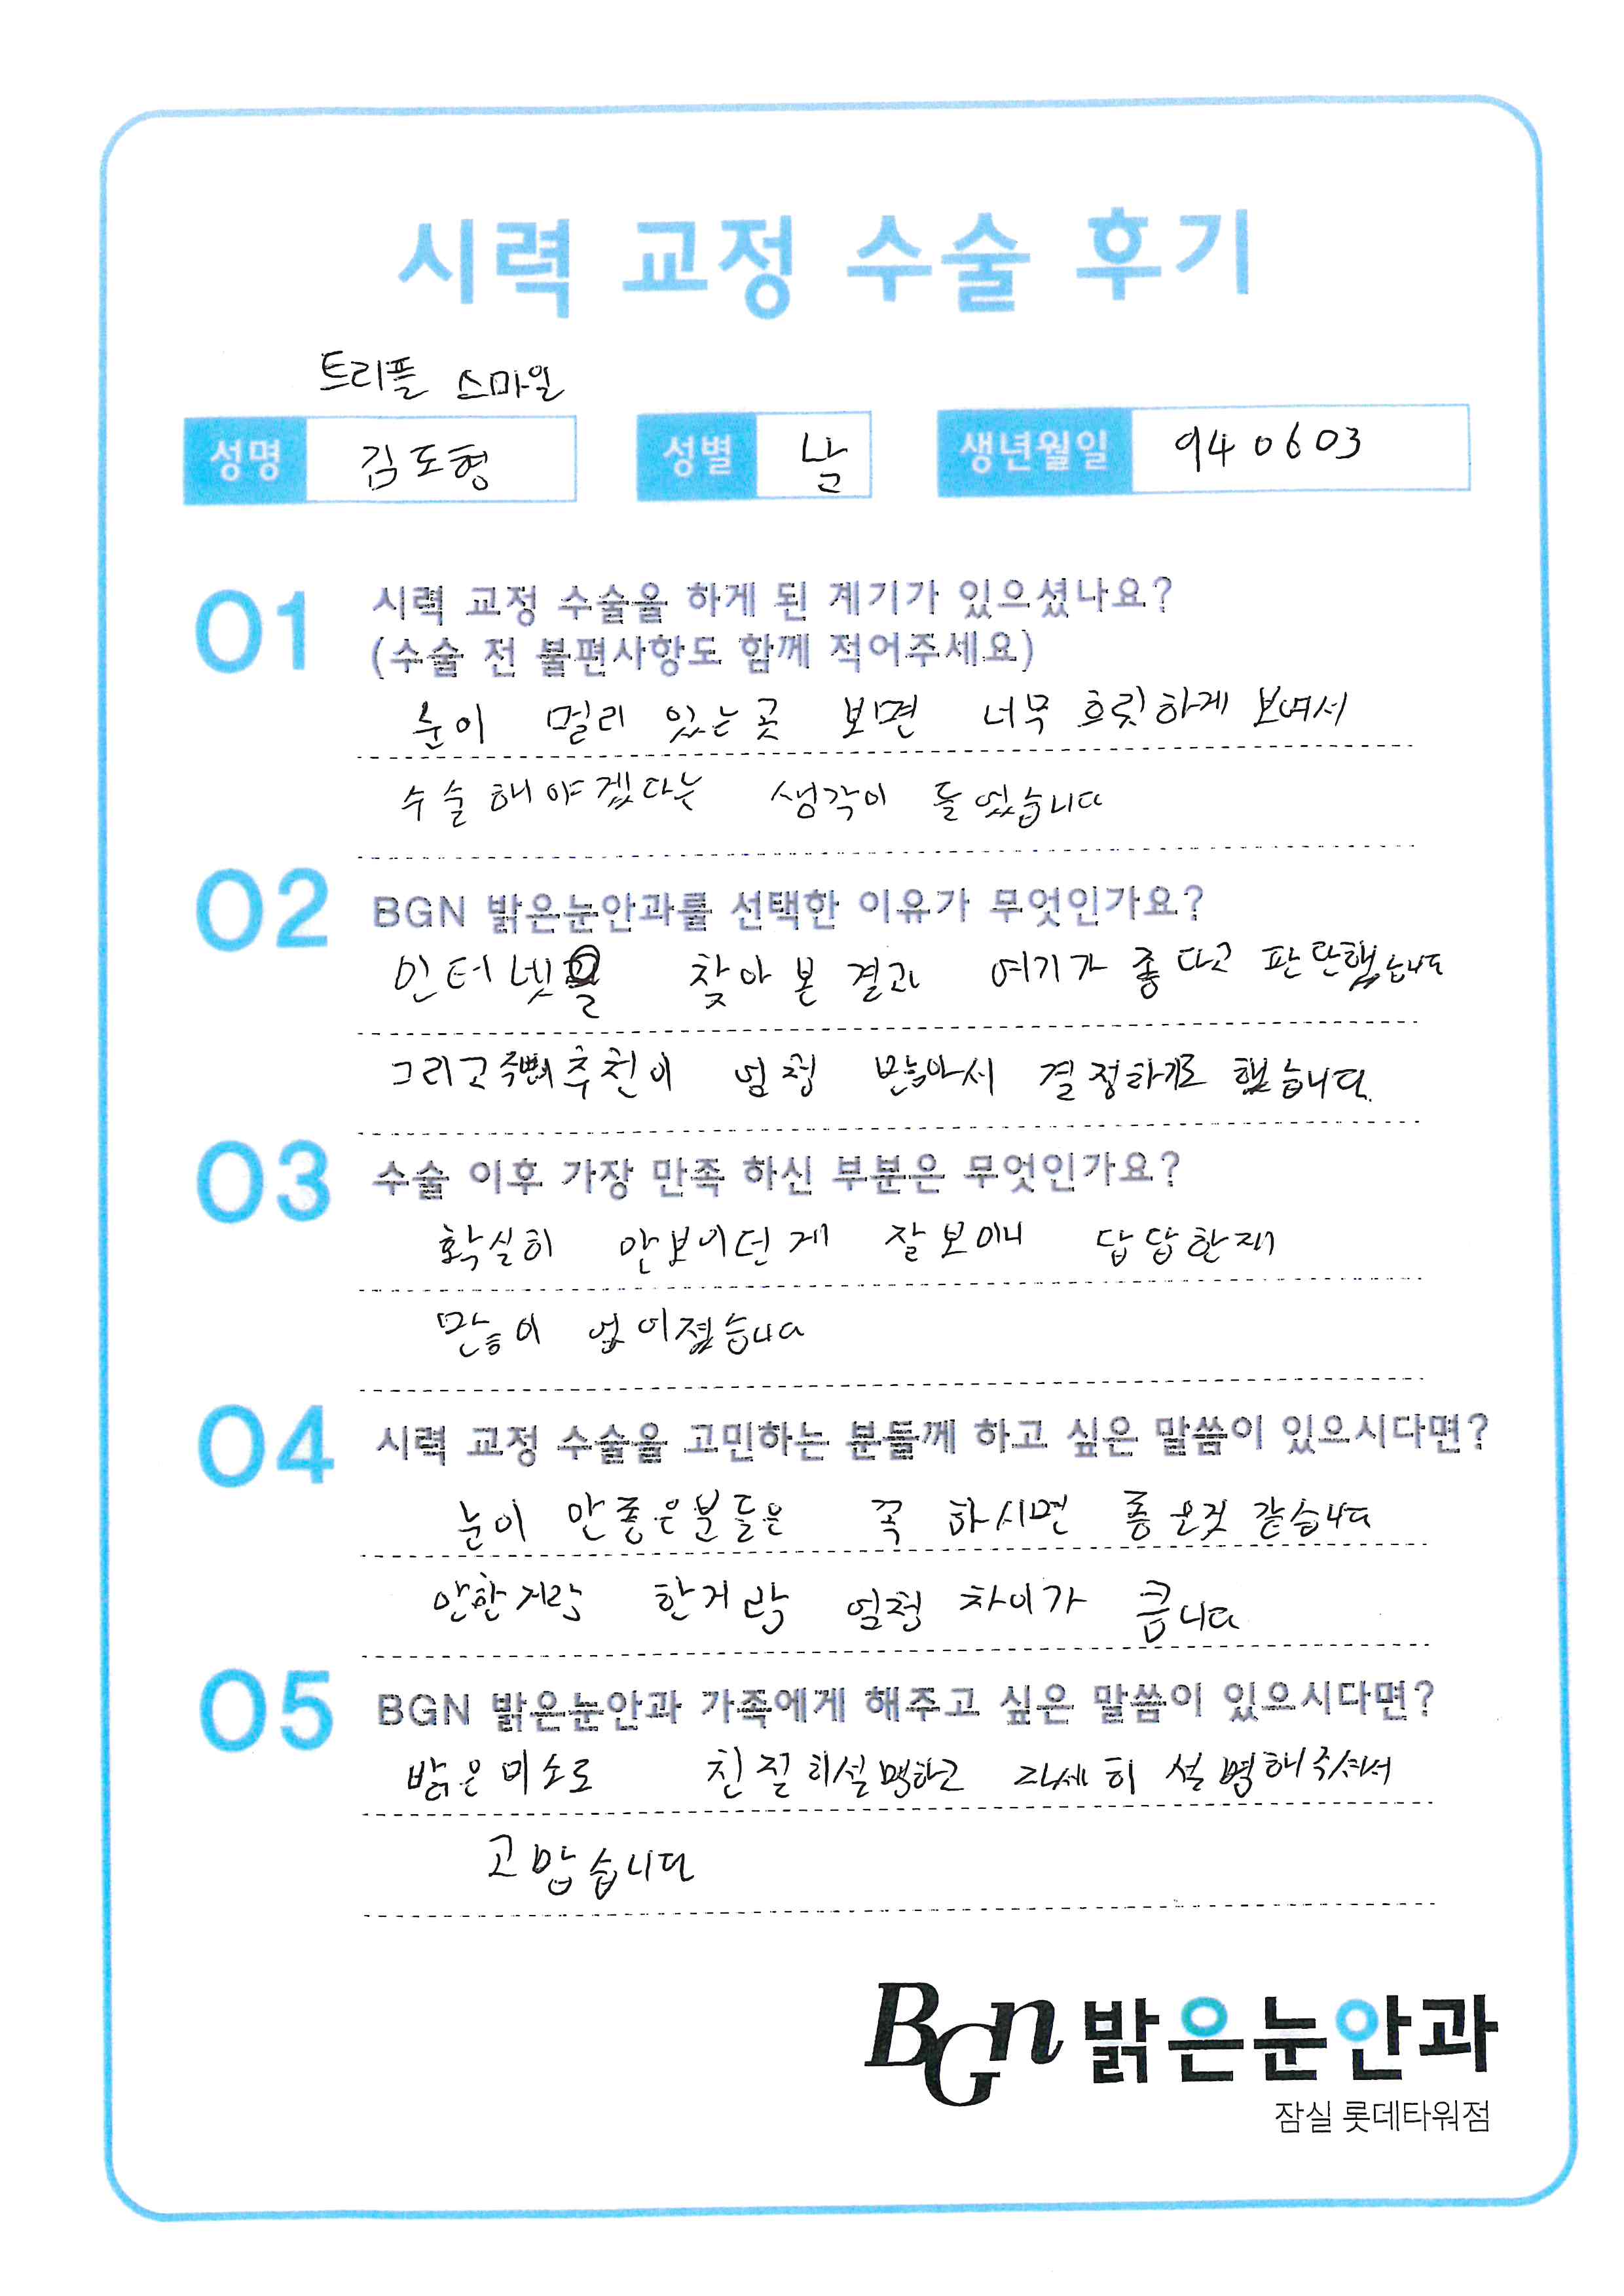 시력 교정 수술 후기
트리플 스마일
성명 김도형 성별 남 생년월일 940603
01 시력 교정 수술을 하게 된 계기가 있으셨나요?
(수술 전 불편사항도 함께 적어주세요)
눈이 멀리 있는곳 보면 너무 흐릿하게 보여서
수술해야겠다는 생각이 들었습니다
02 BGN 밝은눈안과를 선택한 이유가 무엇인가요?
인터넷을 찾아본 결과 여기가 좋다고 판단했습니다
그리고 추천이 엄청 많아서 결정하기로 했습니다.
03 수술 이후 가장 만족 하신 부분은 무엇인가요?
확실히 안보이던게 잘보이니 답답한게
많이 없어졌습니다
04 시력 교정 수술을 고민하는 분들께 하고 싶은 말씀이 있으시다면?
눈이 안좋은분들은 꼭 하시면 좋은것 같습니다
안한거랑 한거랑 엄청 차이가 큽니다
05 BGN 밝은눈안과 가족에게 해주고 싶은 말씀이 있으시다면?
밝은미소로 친절히설명하고 자세히 설명해주셔서
고맙습니다
BGN 밝은눈안과
잠실 롯데타워점